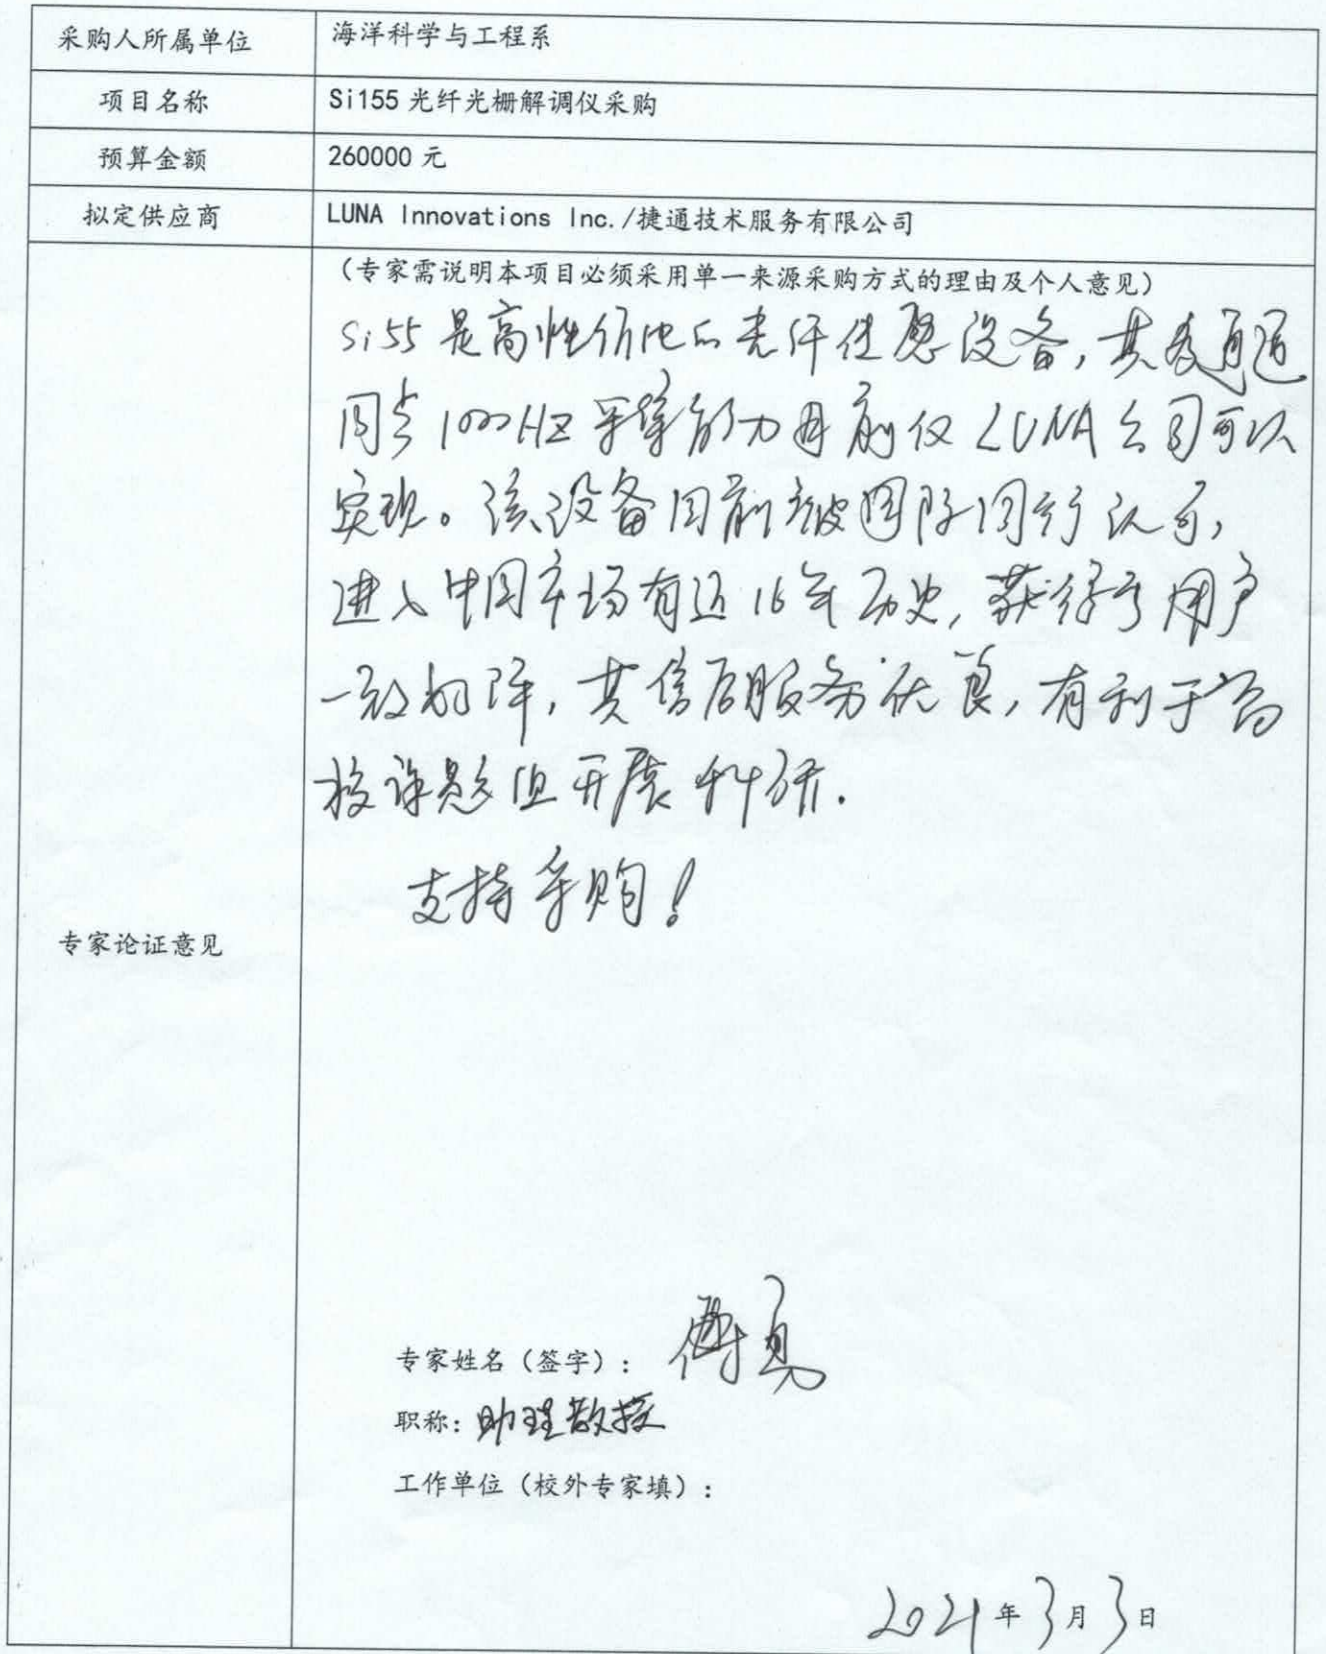 采购人所属单位
海洋科学与工程系
项目名称
Si155 光纤光栅解调仪采购
预算金额
260000 元
拟定供应商
LUNA Innovations Inc./捷通技术服务有限公司
专家论证意见
（专家需说明本项目必须采用单一来源采购方式的理由及个人意见）
Si55是高性价比的光纤传感设备，其多通道
同步1000HZ采集能力目前仅LUNA公司可以
实现。该设备目前被国际同行认可，
进入中国市场有近16年历史，获得了用户
一致好评，其售后服务优良，有利于高
校课题组开展科研.
支持采购！
专家姓名（签字）：
职称：助理教授
工作单位（校外专家填）：
2021年3月3日